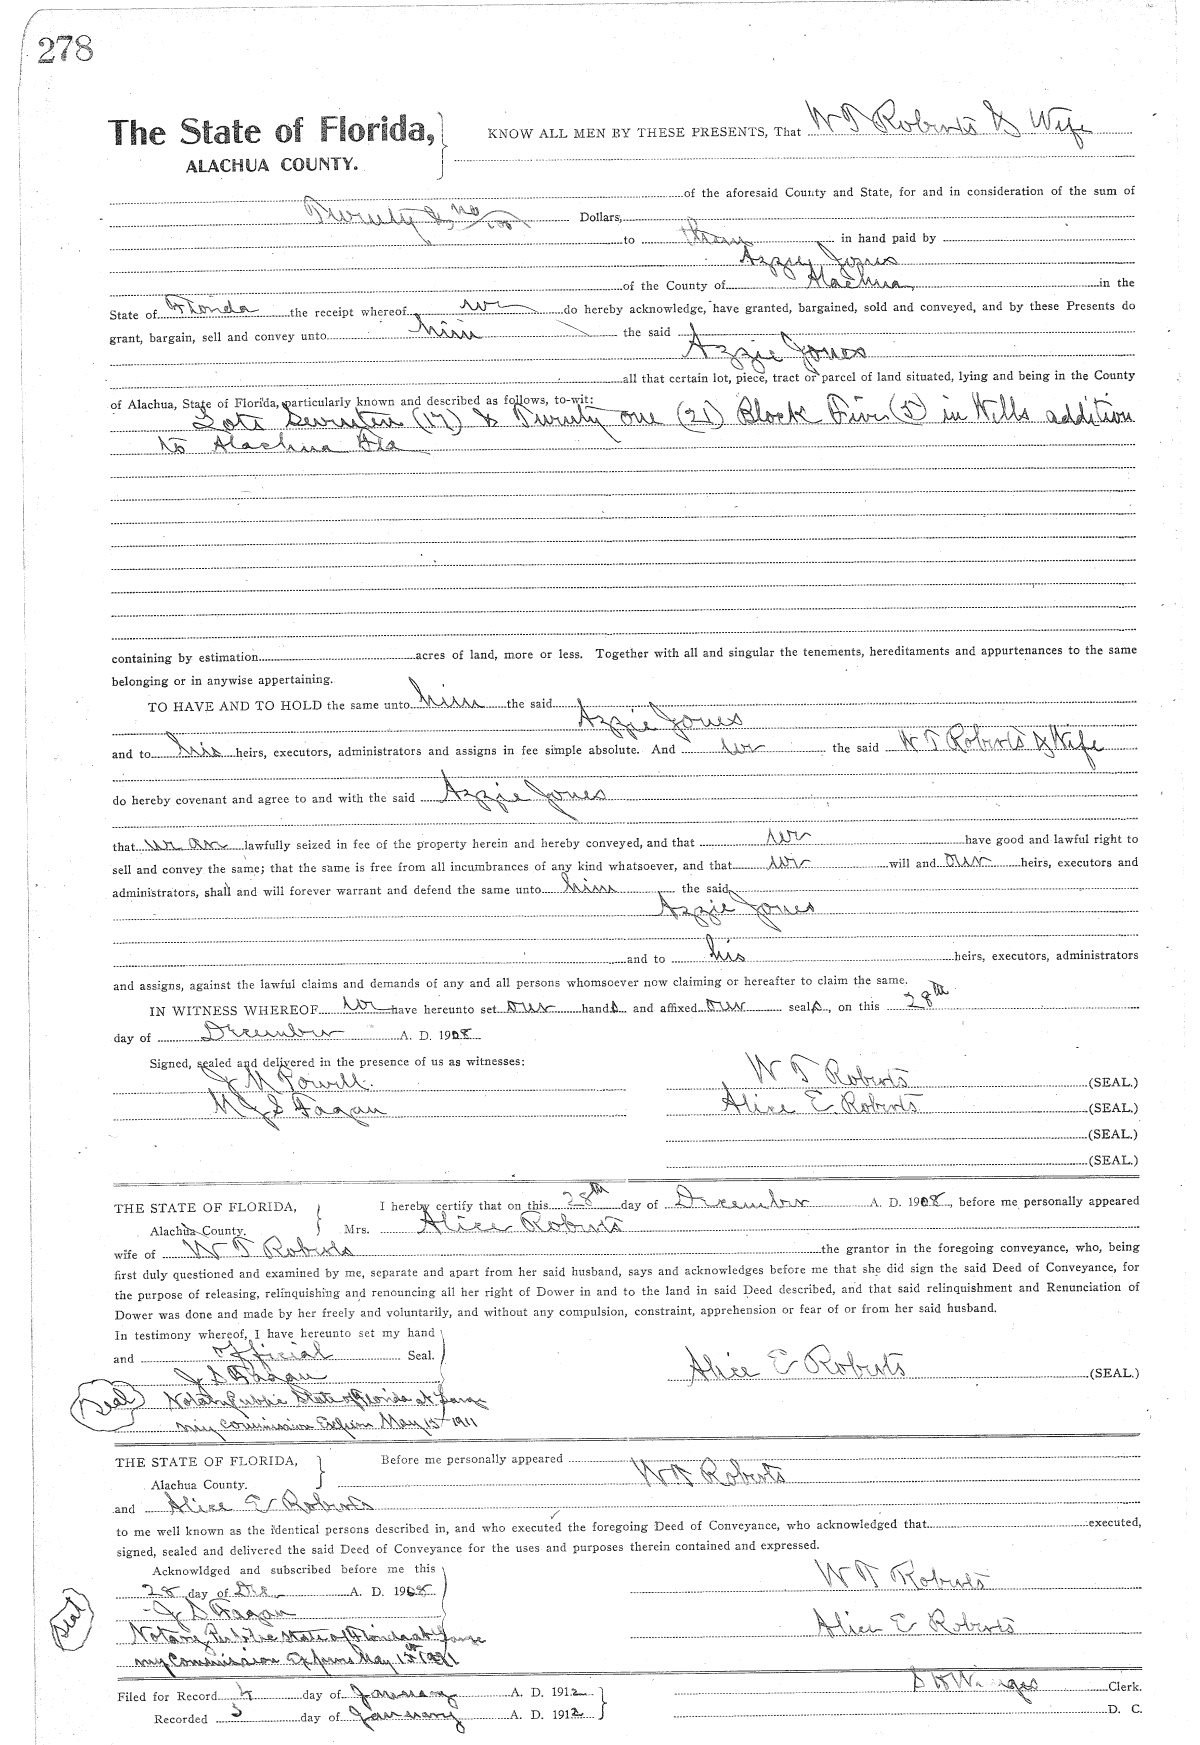 278
The State of Florida, KNOW ALL MEN BY THESE PRESENTS, That W T Roberts & Wife
ALACHUA COUNTY.
of the aforesaid County and State, for and in consideration of the sum of
Twenty & no/100 Dollars,
to them in hand paid by
Azzie Jones
of the County of Alachua in the
State of Florida the receipt whereof we do hereby acknowledge, have granted, bargained, sold and conveyed, and by these Presents do
grant, bargain, sell and convey unto him the said
Azzie Jones
all that certain lot, piece, tract or parcel of land situated, lying and being in the County
of Alachua, State of Florida, particularly known and described as follows, to-wit:
Lots Seventen (17) & Twenty one (21) Block Five (5) in Wells addition
to Alachua Fla
containing by estimation acres of land, more or less. Together with all and singular the tenements, hereditaments and appurtenances to the same
belonging or in anywise appertaining.
TO HAVE AND TO HOLD the same unto him the said
Azzie Jones
and to his heirs, executors, administrators and assigns in fee simple absolute. And we the said W T Roberts & Wife
do hereby covenant and agree to and with the said Azzie Jones
that we are lawfully seized in fee of the property herein and hereby conveyed, and that we have good and lawful right to
sell and convey the same; that the same is free from all incumbrances of any kind whatsoever, and that we will and our heirs, executors and
administrators, shall and will forever warrant and defend the same unto him the said
Azzie Jones
and to his heirs, executors, administrators
and assigns, against the lawful claims and demands of any and all persons whomsoever now claiming or hereafter to claim the same.
IN WITNESS WHEREOF we have hereunto set our hands and affixed our seals, on this 28th
day of December A. D. 1908
Signed, sealed and delivered in the presence of us as witnesses:
J M Powell W T Roberts (SEAL.)
J S Fagan Alice E Roberts (SEAL.)
(SEAL.)
(SEAL.)
THE STATE OF FLORIDA, I hereby certify that on this 28th day of December A. D. 1908, before me personally appeared
Alachua County. Mrs. Alice Roberts
wife of W T Roberts the grantor in the foregoing conveyance, who, being
first duly questioned and examined by me, separate and apart from her said husband, says and acknowledges before me that she did sign the said Deed of Conveyance, for
the purpose of releasing, relinquishing and renouncing all her right of Dower in and to the land in said Deed described, and that said relinquishment and Renunciation of
Dower was done and made by her freely and voluntarily, and without any compulsion, constraint, apprehension or fear of or from her said husband.
In testimony whereof, I have hereunto set my hand
and official Seal.
J S Fagan Alice E Roberts (SEAL.)
Seal Notary Public State of Florida at Large
my Commission Expires May 15 1911
THE STATE OF FLORIDA, Before me personally appeared
Alachua County. W T Roberts
and Alice E Roberts
to me well known as the identical persons described in, and who executed the foregoing Deed of Conveyance, who acknowledged that executed,
signed, sealed and delivered the said Deed of Conveyance for the uses and purposes therein contained and expressed.
Acknowldged and subscribed before me this
28 day of Dec A. D. 1908 W T Roberts
J S Fagan
Seal Notary Public State of Florida at Large Alice E Roberts
my Commission Expires May 15th 1911
Filed for Record day of January A. D. 1912 Clerk.
Recorded 3 day of January A. D. 1912 D. C.